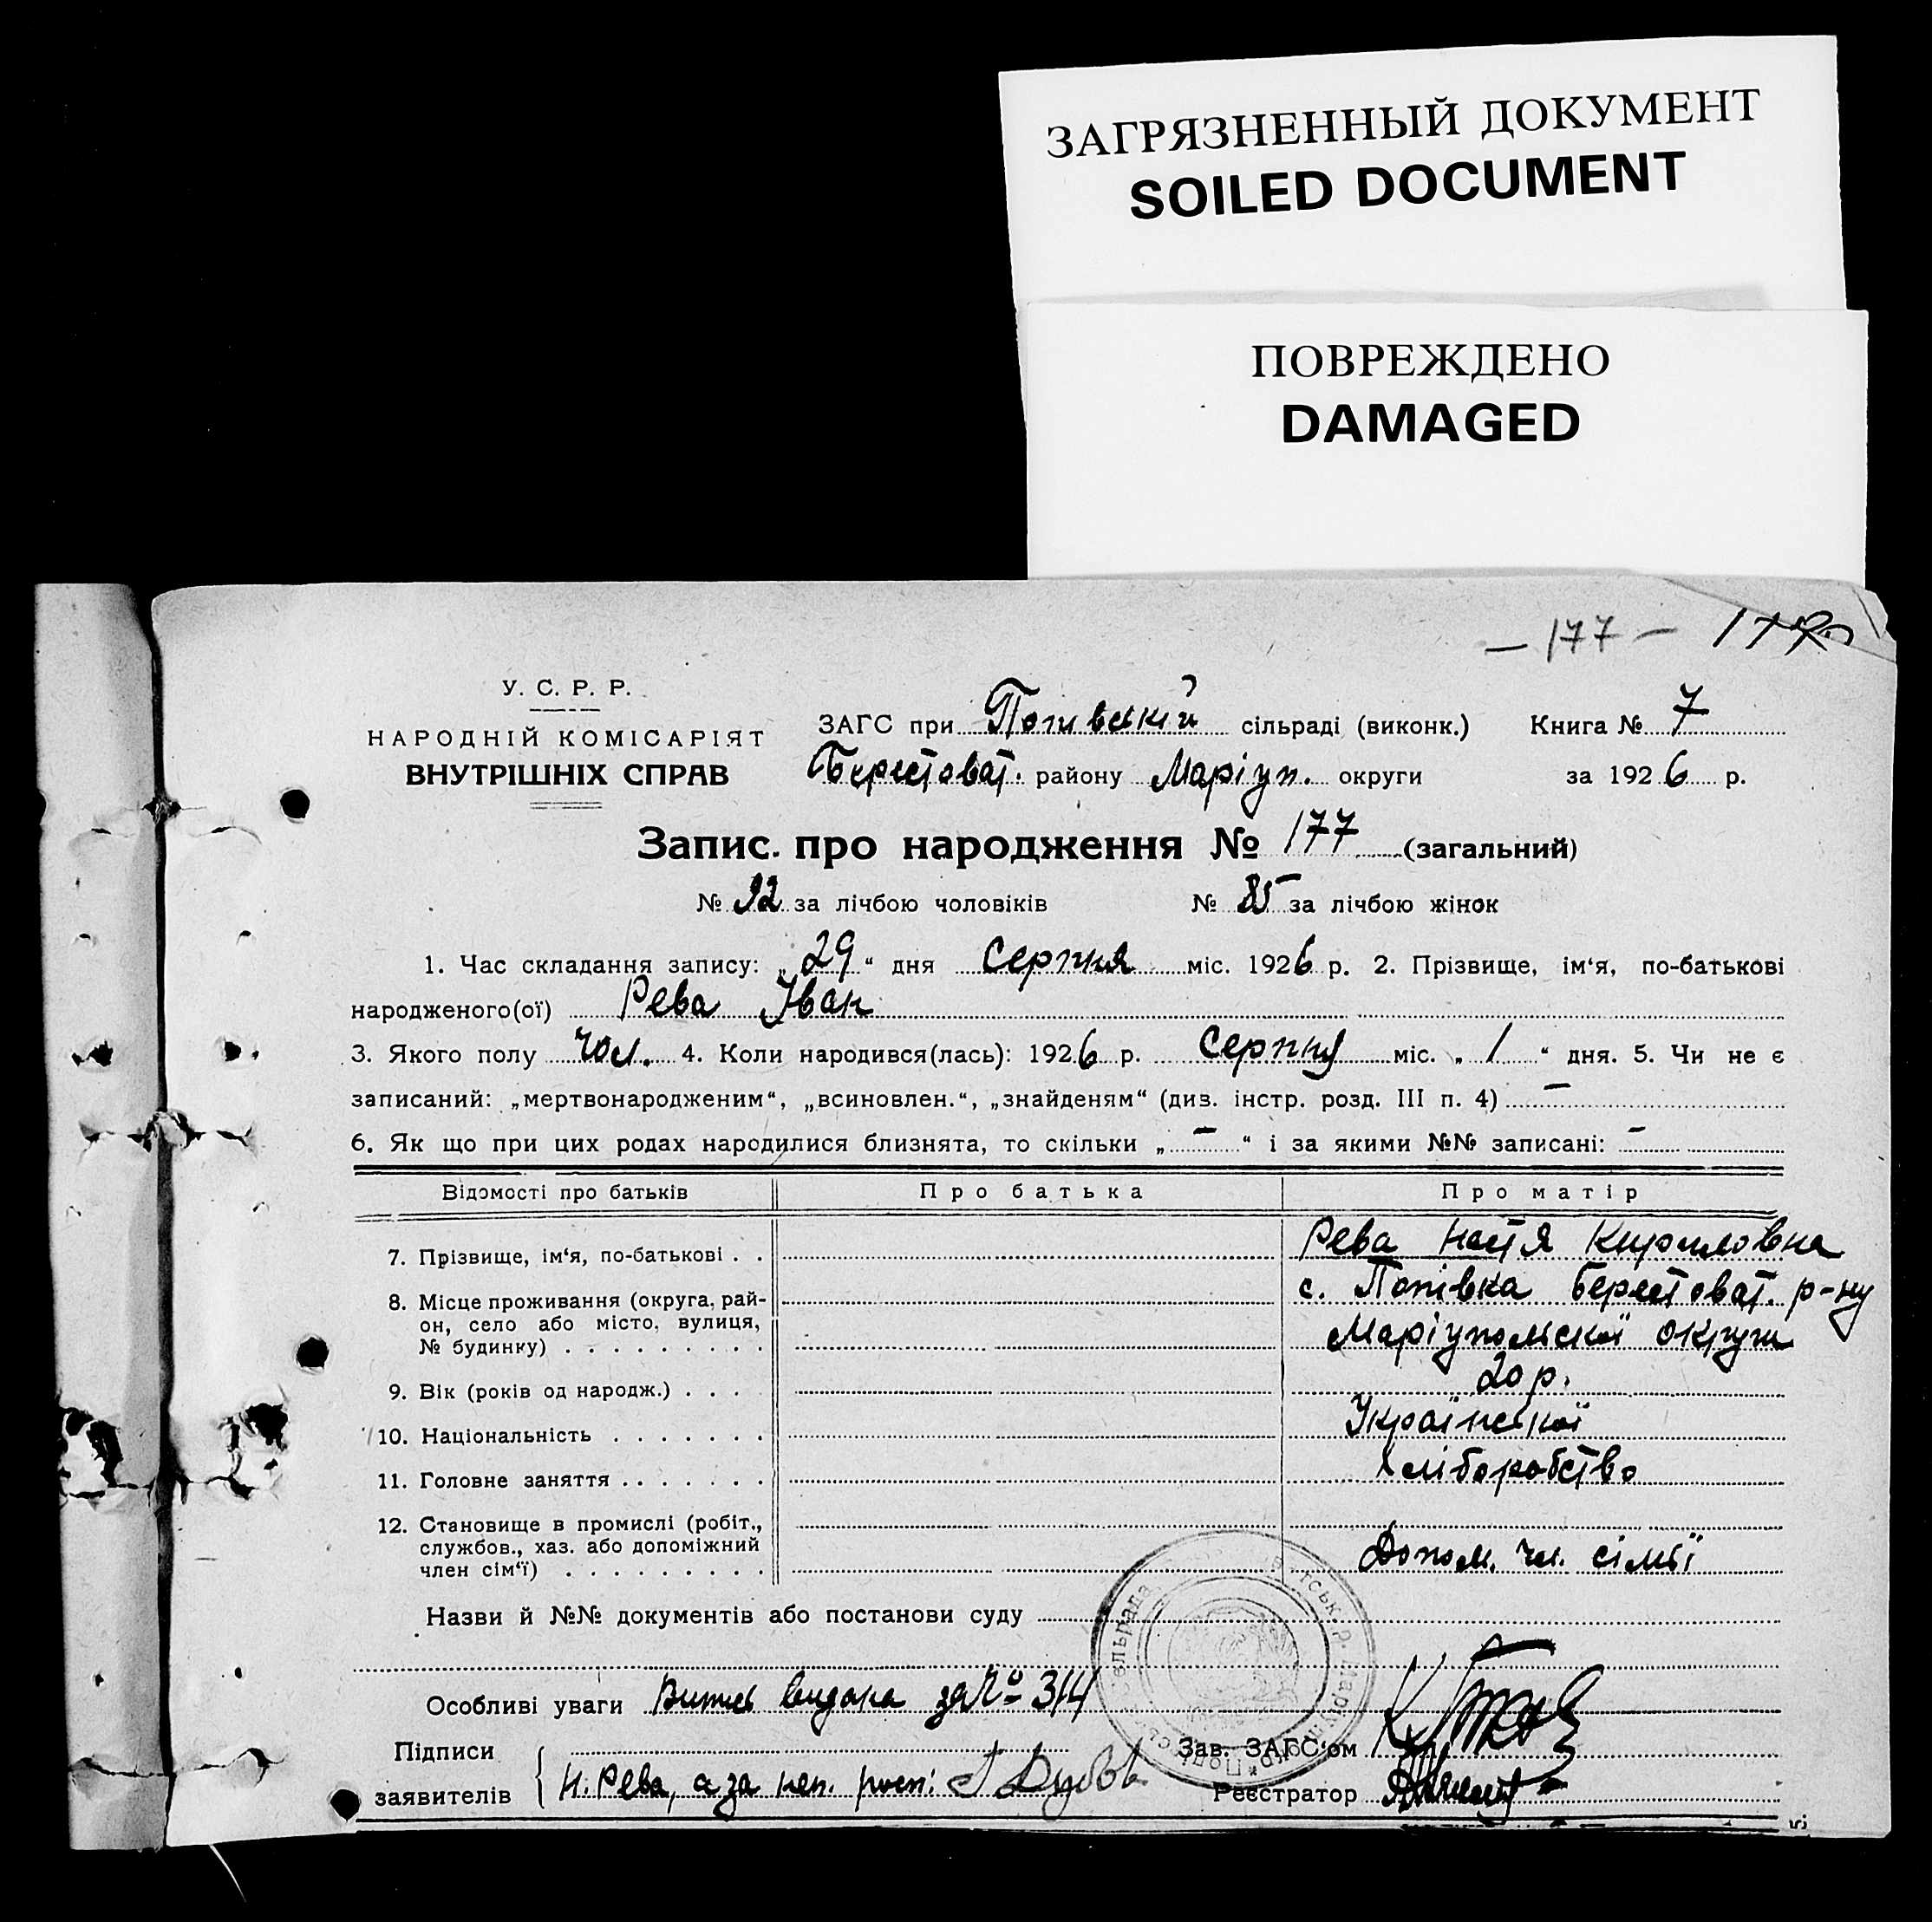 ЗАГРЯЗНЕННЫЙ ДОКУМЕНТ
SOILED DOCUMENT
ПОВРЕЖДЕНО
DAMAGED
— 177 —
У. С. Р. Р.
НАРОДНІЙ КОМІСАРІЯТ
ВНУТРІШНІХ СПРАВ
ЗАГС при Попівській сільраді (виконк.) Книга № 7
Берестоват. району Маріуп. округи за 1926 р.
Запис про народження № 177 (загальний)
№ 92 за лічбою чоловіків № 85 за лічбою жінок
1. Час складання запису: „29“ дня серпня міс. 1926 р. 2. Прізвище, ім‘я, по-батькові
народженого(ої) Рева Іван
3. Якого полу чол. 4. Коли народився(лась): 1926 р. серпня міс. „1“ дня. 5. Чи не є
записаний: „мертвонародженим“, „всиновлен.“, „знайденям“ (див. інстр. розд. III п. 4) —
6. Як що при цих родах народилися близнята, то скільки „—“ і за якими №№ записані: —
Відомості про батьків Про батька Про матір
7. Прізвище, ім‘я, по-батькові . . Рева Настя Кириловна
8. Місце проживання (округа, рай-
он, село або місто, вулиця,
№ будинку) . . . . . . . . .
с. Попівка Берестоват. р-ну
Маріупольської округи
9. Вік (років од народж.) . . . . 20 р.
10. Національність . . . . . . . Української
11. Головне заняття . . . . . . . хліборобство
12. Становище в промислі (робіт.,
службов., хаз. або допоміжний
член сім‘ї) . . . . . . . . .
Допом. чл. сімьї
Назви й №№ документів або постанови суду
Особливі уваги видана за № 314
Підписи
заявителів Н. Рева, а за неп. росп:
Зав. ЗАГС‘ом
Реєстратор